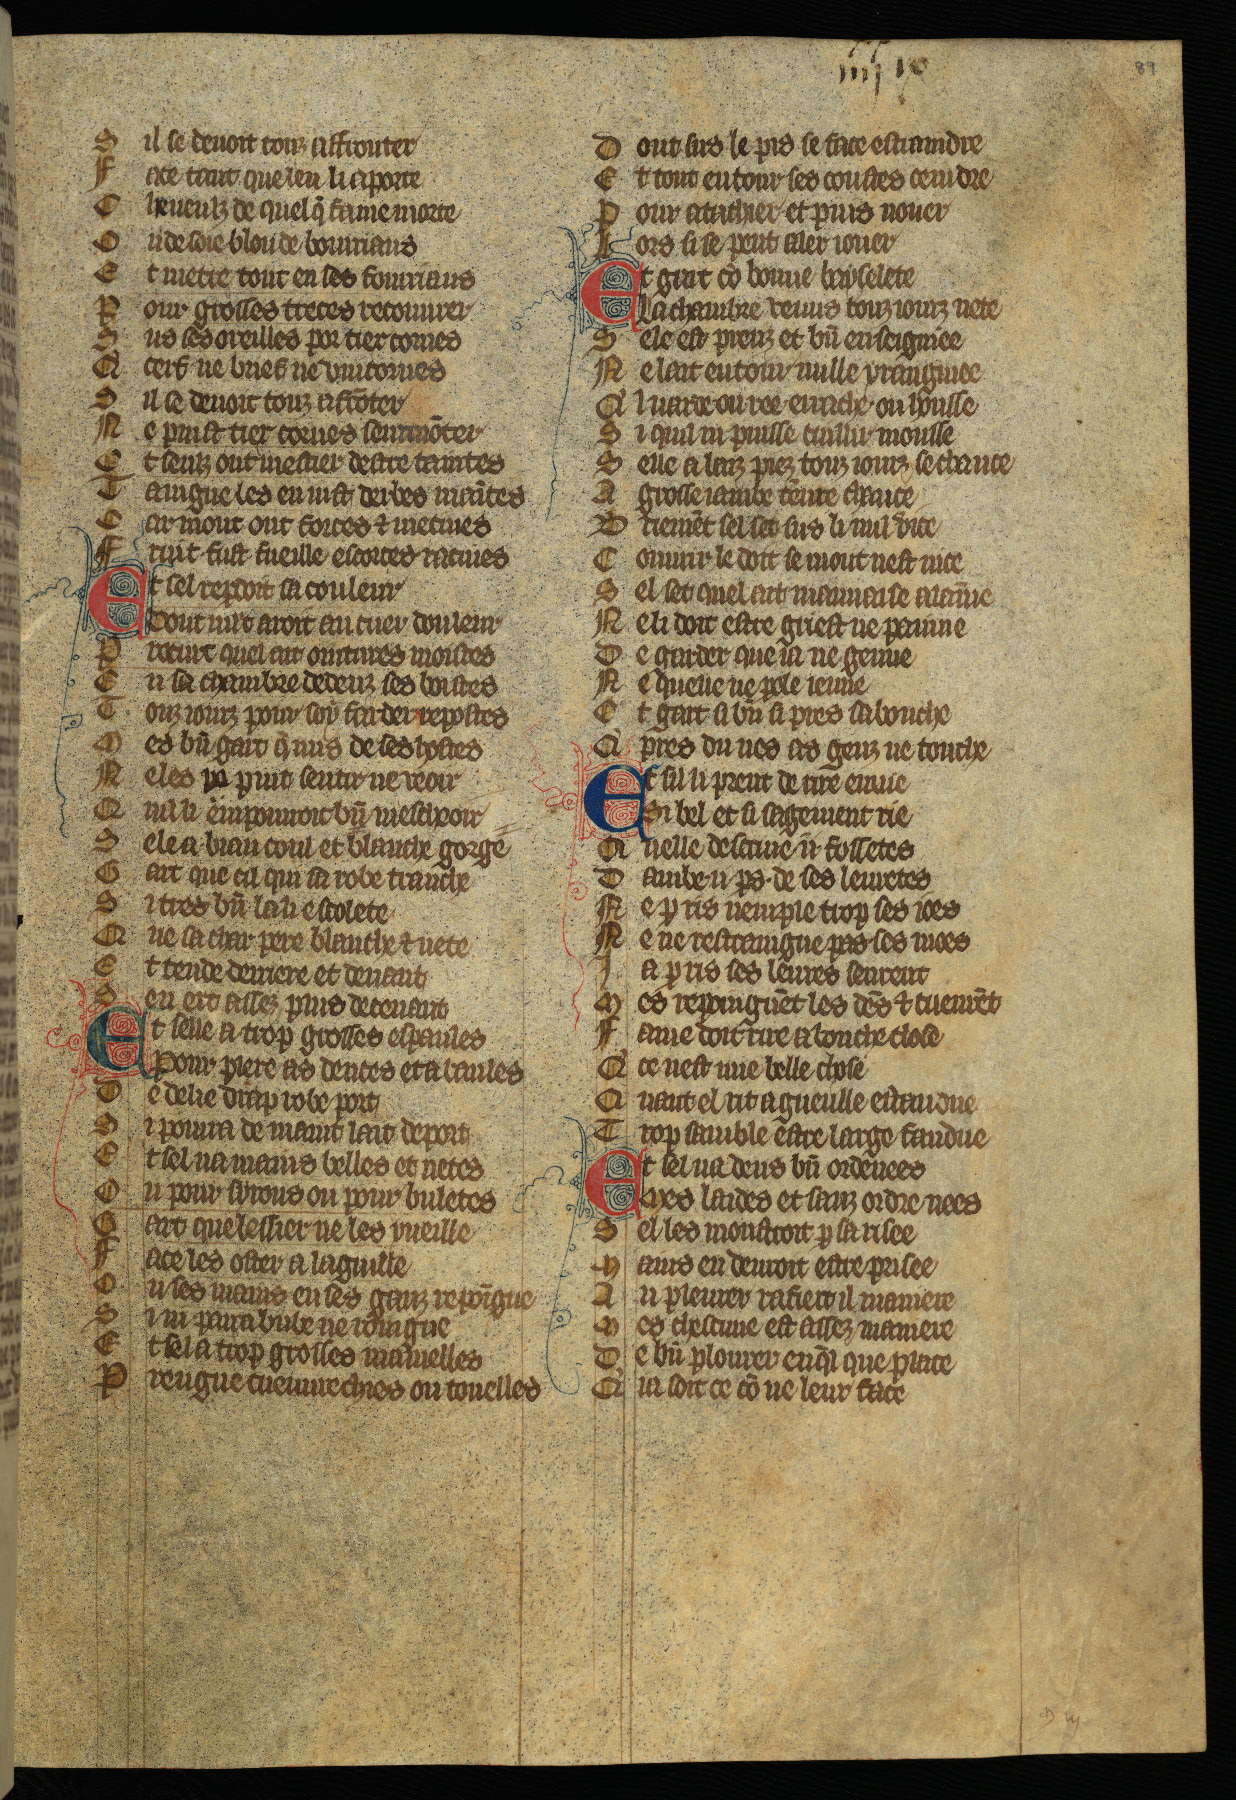 iiij xx ix
89
S il se devoit touz affronter
F ace tant que len li aporte
C heveulz de quelq̃ fame morte
O u de soie blonde bourriaus
E t mette tout en ses fourriaus
P our grosses treces recouvrer
S us ses oreilles por tier cornes
Q cerf ne brief ne unicornes
S il se devoit touz afrõter
N e puist tier cornes seurmõter
E t seulz ont mestier destre taintes
T aingne les en iust derbes maĩtes
C ar mout ont forces & mecines
F ruit fust fueille escorces racines
Et sel reperdoit sa couleur
Dont mlt avoit au cuer douleur
P rocurt quel ait ointures moistes
E n sa chambre dedenz ses boistes
T ouz iourz pour soy farder repostes
M es bñ gart q̃ nus de ses hostes
N eles puit sentir ne veoir
Q ml li empourroit bñ mescheoir
S ele a biau coul et blanche gorge
G art que cil qui sa robe tranche
S i tres bñ la li escolete
Q ue sa char pere blanche & nete
E t tende derriere et devant
S en ert assez puis decevant
Et selle a trop grosses espaules
Pour plere as dences et a baules
D e delie drap robe port
S i pourra de maint lait deport
E t sel na mains belles et netes
O u pour syrons ou pour buletes
G art que lessier ne les vueille
F ace les oster a laguille
O u ses mains en ses ganz repoĩgne
S i ni parra bube ne roingne
E t sel a trop grosses mamelles
P rengne cuevrechies ou touelles
D ont sus le pis se face estraindre
E t tout entour ses coustes ceindre
P our atachier et puis nouer
L ors si se peut aler iouer
Et gart cõ bonne baisselete
La chambre venus touz iourz nete
S ele est preuz et bñ enseigniee
N e lait entour nulle yraigniee
Q l narde ou ree errache ou housse
S i quil ni puisse cuillir mousse
S elle a laiz piez touz iourz se chauce
A grosse iambe tenve chauce
B riemẽt sel set sus li nul vice
C ouvrir le doit se mout nest nice
S el set quel ait mauvaise alaĩne
N e li doit estre griest ne painne
D e garder que ia ne geune
N e quelle ne parle ieune
E t gart si bñ si pres sa bouche
Q pres du nes as genz ne touche
Et sil li prent de rire envie
Si bel et si sagement rie
Q uelle descrive .ii. fossetes
D ambe .ii. ps. de ses levretes
N e p ris nemple trop ses ioes
N e ne restraingne pas ses moes
I a p ris ses levres senrent
M es repoinguẽt les dẽs & cuevrẽt
F ame doit rire a bouche close
Q ce nest mie belle chose
Q uant el rit a gueulle estandue
T rop samble estre large fandue
Et sel na dens bñ ordenees
Mes laides et sanz ordre nees
S el les monstroit p sa risee
M ains en devroit estre prisee
A u pleurer rafiert il maniere
M es chescune est assez maniere
D e bñ plourer en q̃l que place
Q ia soit ce cõ ne leur face
D iij